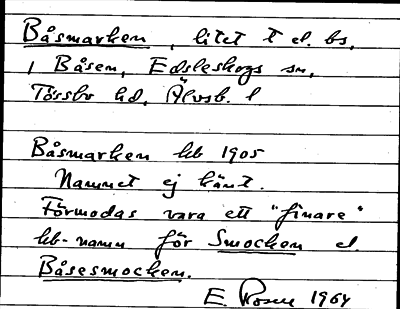 Båsmarken, litet t el. bs.
i Båsen, Edsleskogs sn,
Tössbo hd, Älvsb. l
Båsmarken kb 1905
Namnet ej känt.
Förmodas vara ett "finare"
kb-namn för Smocken el.
Båsesmocken.
E. Rosen 1964